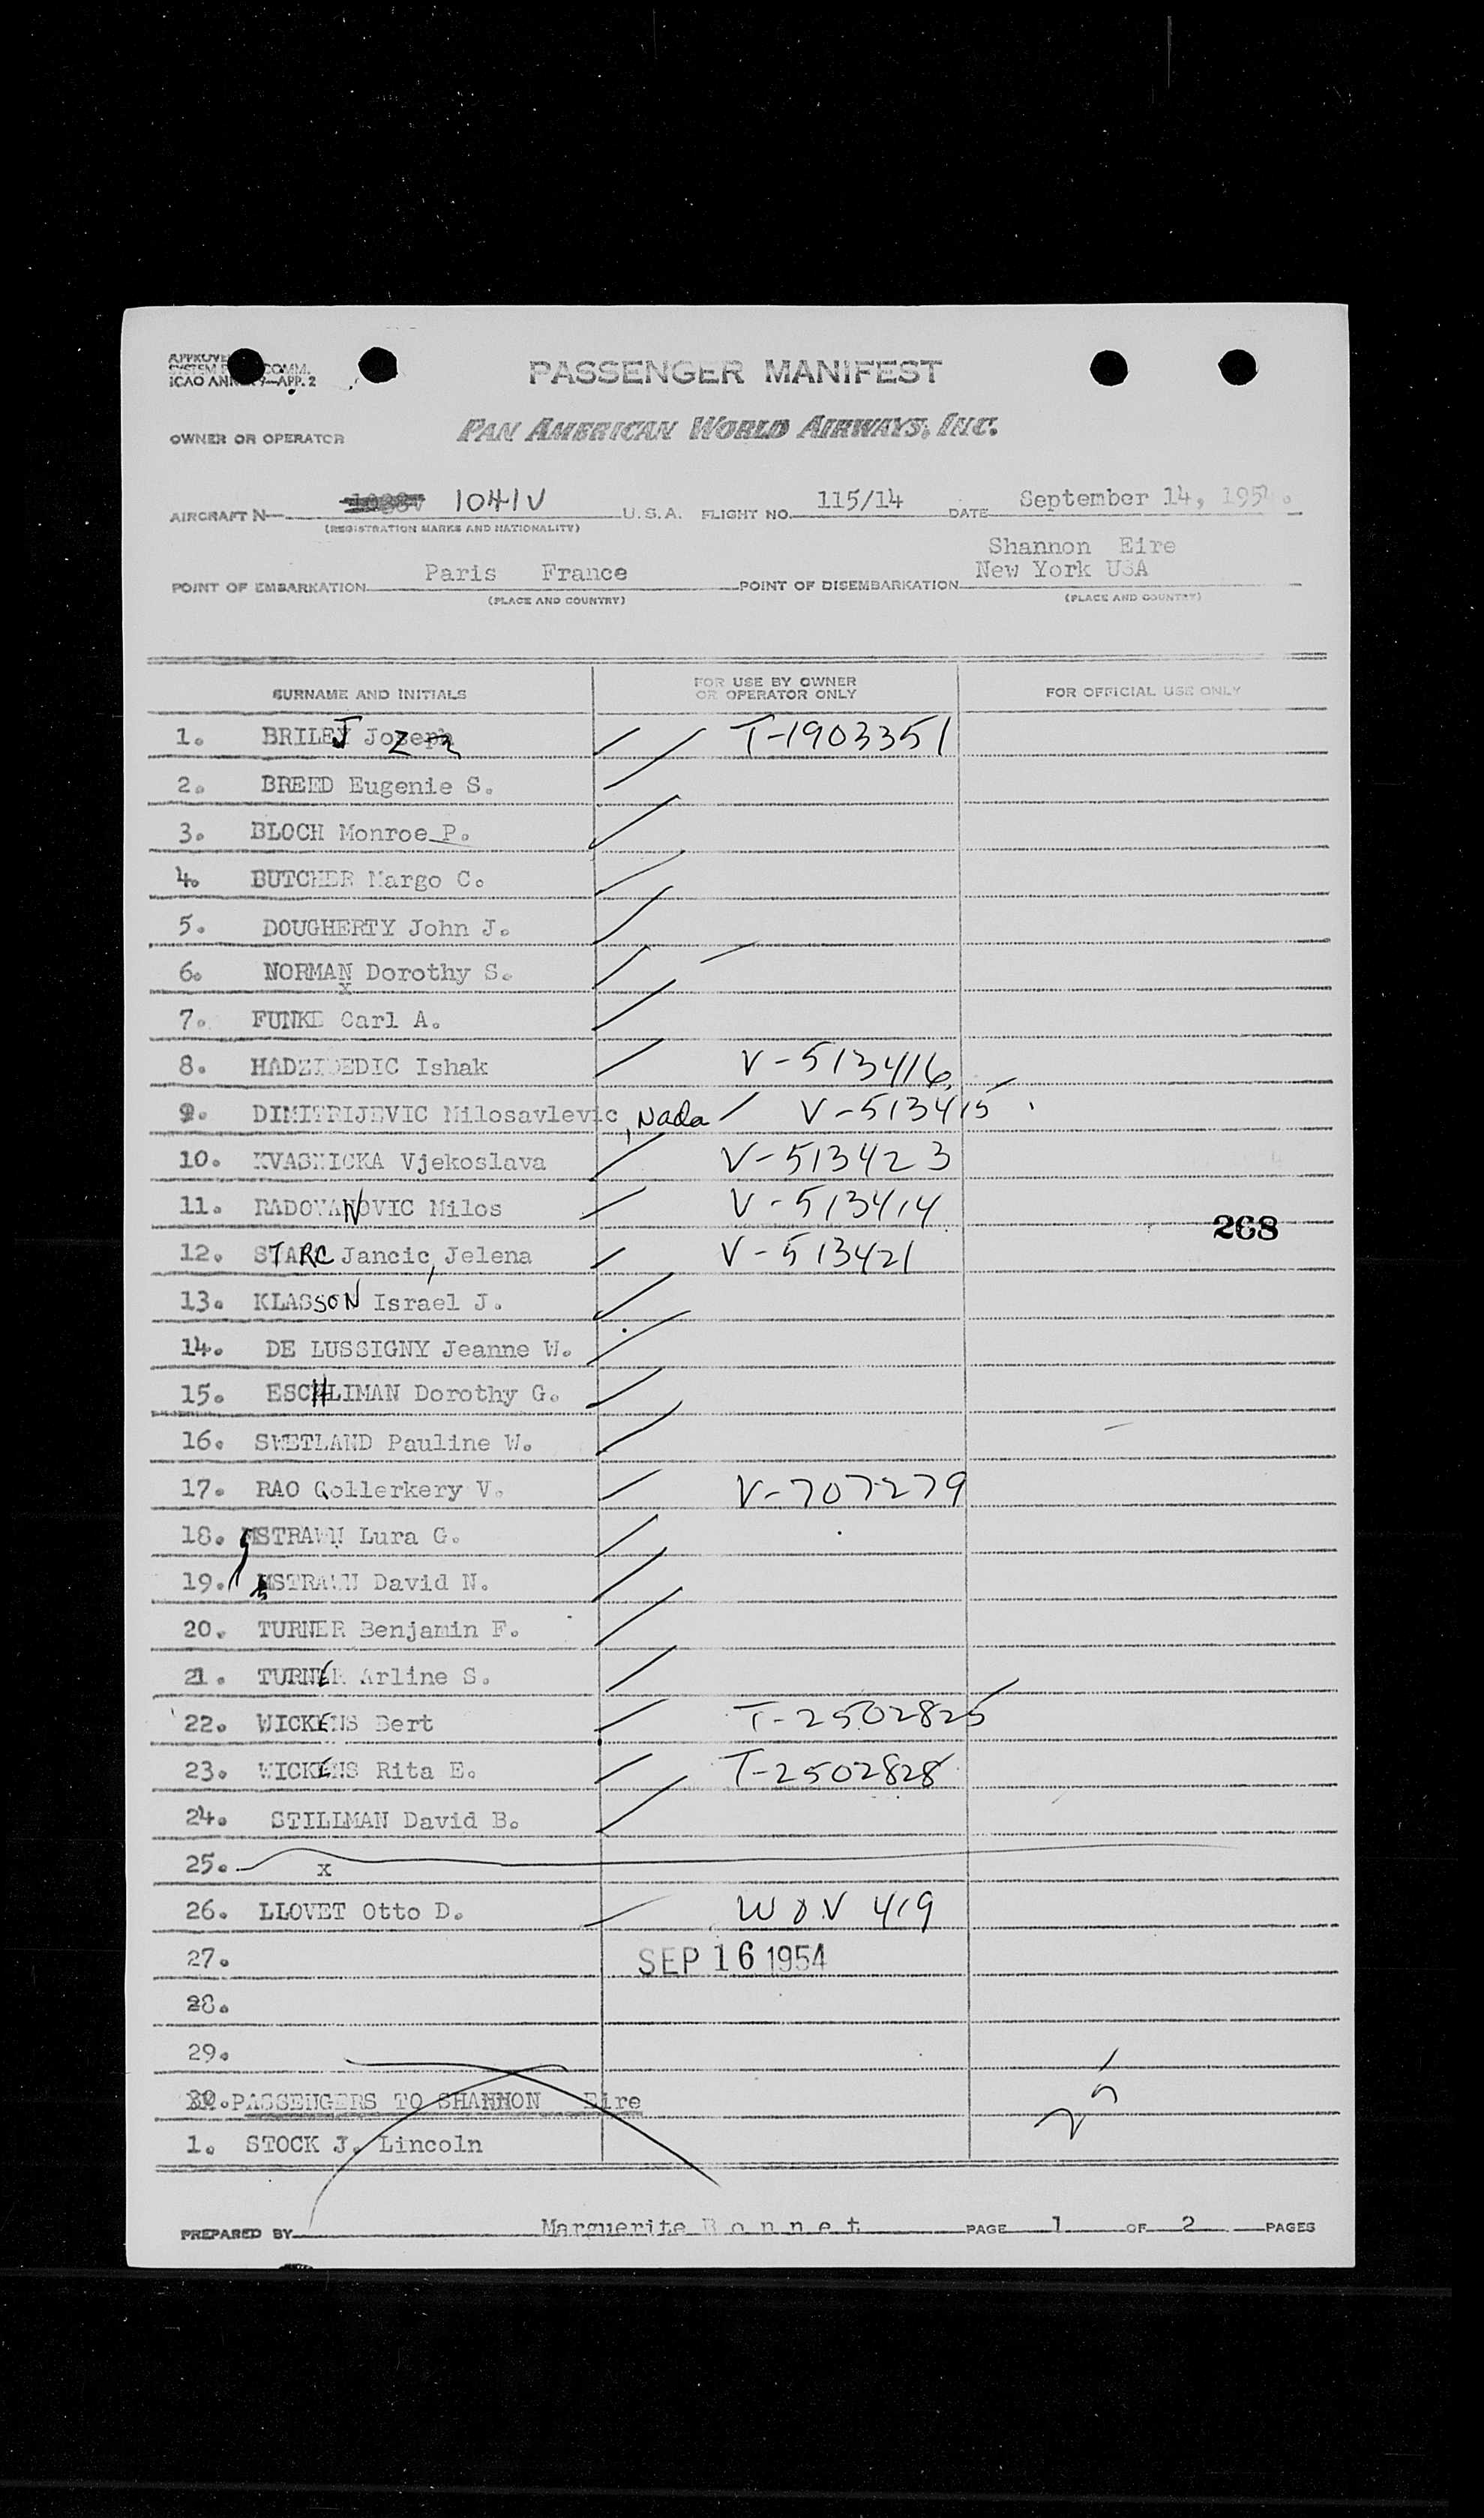 PASSENGER MANIFEST
ICAO ANNEX 9—APP. 2
OWNER OR OPERATOR PAN AMERICAN WORLD AIRWAYS, INC.
AIRCRAFT N— 1041V U.S.A. FLIGHT NO. 115/14 DATE September 14, 1954.
(REGISTRATION MARKS AND NATIONALITY)
Shannon Eire
POINT OF EMBARKATION Paris France POINT OF DISEMBARKATION New York USA
(PLACE AND COUNTRY) (PLACE AND COUNTRY)
SURNAME AND INITIALS FOR USE BY OWNER OR OPERATOR ONLY FOR OFFICIAL USE ONLY
1. BRILEJ Jozef T-1903351
2. BREED Eugenie S.
3. BLOCH Monroe P.
4. BUTCHER Margo C.
5. DOUGHERTY John J.
6. NORMAN Dorothy S.
x
7. FUNKE Carl A.
8. HADZIDEDIC Ishak V-513416
9. DIMITRIJEVIC Milosavlevic, Nada V-513415
10. KVASNICKA Vjekoslava V-513423
11. RADOVANOVIC Milos V-513414
268
12. STARC Jancic, Jelena V-513421
13. KLASSON Israel J.
14. DE LUSSIGNY Jeanne W.
15. ESCHLIMAN Dorothy G.
16. SWETLAND Pauline W.
17. RAO Gollerkery V. V-707279
18. STRAWN Lura G.
19. STRAWN David N.
20. TURNER Benjamin F.
21. TURNER Arline S.
22. WICKENS Bert T-2502825
23. WICKENS Rita E. T-2502828
24. STILLMAN David B.
25. x
26. LLOVET Otto D. WOV 419
27. SEP 16 1954
28.
29.
30. PASSENGERS TO SHANNON Eire
1. STOCK J. Lincoln
PREPARED BY Marguerite Bonnet PAGE 1 OF 2 PAGES